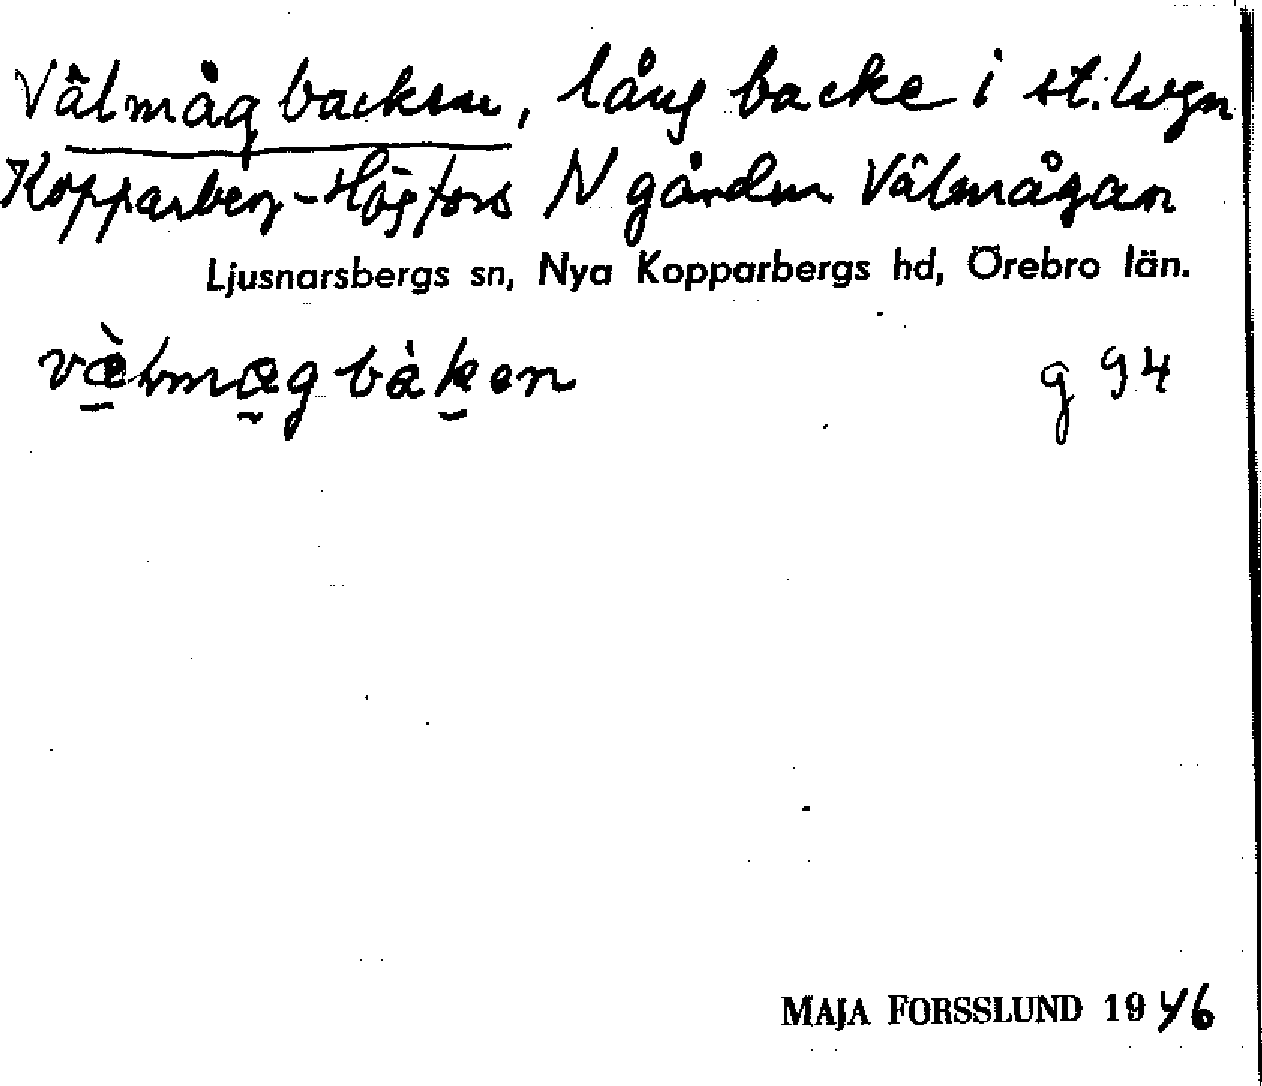 Välmågbacken, lång backe i st. vägen
Kopparberg-Högfors N gården Välmågan
Ljusnarsbergs sn, Nya Kopparbergs hd, Örebro län.
g 94
MAJA FORSSLUND 1946